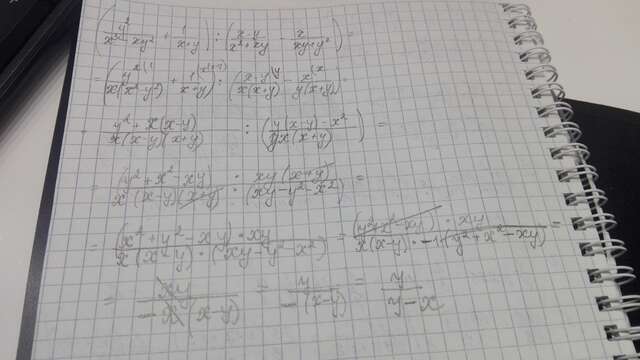 (y²/(x³-xy²) + 1/(x+y)) : ((x-y)/(x²+xy) - x/(xy+y²)) =
= (y²/(x(x²-y²)) + 1/(x+y)) : ((x-y)/(x(x+y)) - x/(y(x+y))) =
= (y²+x(x-y))/(x(x-y)(x+y)) : (y(x-y)-x²)/(yx(x+y)) =
= (y²+x²-xy)/(x(x-y)(x+y)) : xy(x+y)/(xy-y²-x²) =
= (x²+y²-xy)·xy/(x(x-y)·(xy-y²-x²)) = (y²+x²-xy)·xy/(x(x-y)·-1·(y²+x²-xy)) =
= xy/(-x(x-y)) = y/(-(x-y)) = y/(y-x)